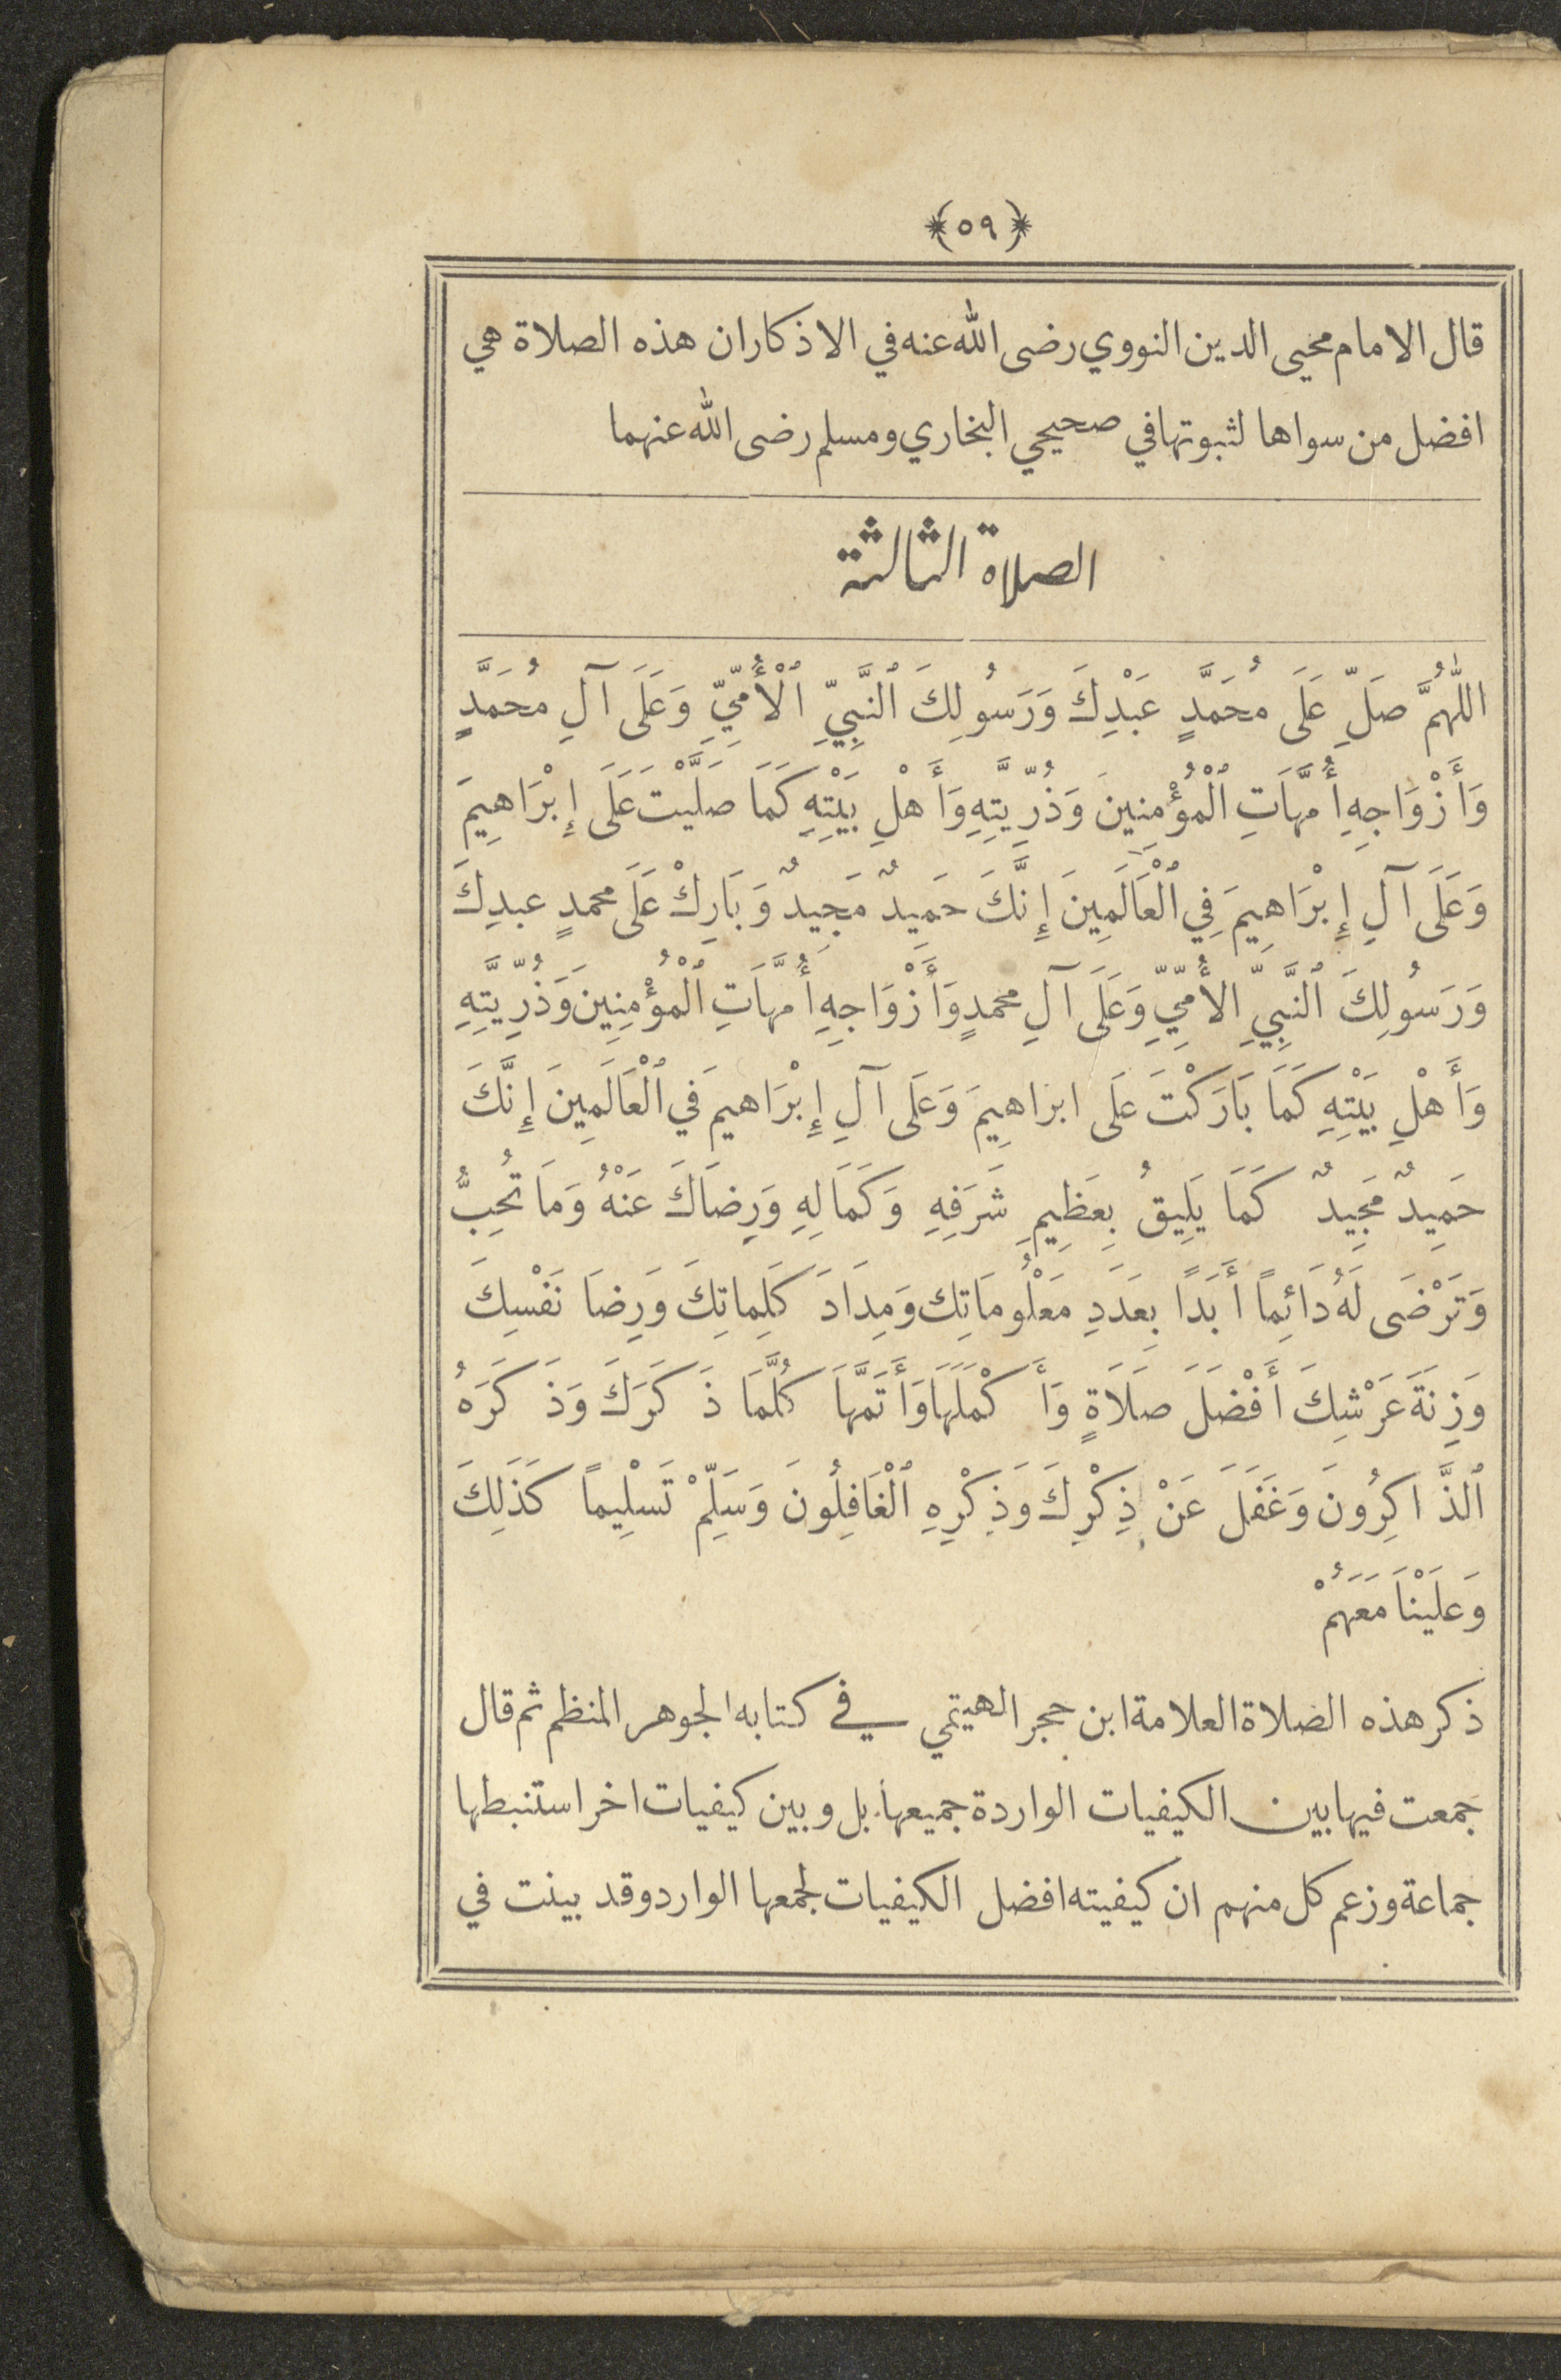 ﴿٥٩﴾
قال الامام محيى الدين النووي رضى الله عنه في الاذكار ان هذه الصلاة هي
افضل من سواها لثبوتها في صحيحي البخاري ومسلم رضى الله عنهما
الصلاة الثالثة
اللّٰهُمَّ صَلِّ عَلَى مُحَمَّدٍ عَبْدِكَ وَرَسُولِكَ ٱلنَّبِيِّ ٱلْأُمِّيِّ وَعَلَى آلِ مُحَمَّدٍ
وَأَزْوَاجِهِ أُمَّهَاتِ ٱلْمُؤْمِنِينَ وَذُرِّيَّتِهِ وَأَهْلِ بَيْتِهِ كَمَا صَلَّيْتَ عَلَى إِبْرَاهِيمَ
وَعَلَى آلِ إِبْرَاهِيمَ فِي ٱلْعَالَمِينَ إِنَّكَ حَمِيدٌ مَجِيدٌ وَبَارِكْ عَلَى محمدٍ عبدِكَ
وَرَسُولِكَ ٱلنَّبِيِّ الأُمِّيِّ وَعَلَى آلِ محمدٍ وَأَزْوَاجِهِ أُمَّهَاتِ ٱلْمُؤْمِنِينَ وَذُرِّيَّتِهِ
وَأَهْلِ بَيْتِهِ كَمَا بَارَكْتَ عَلَى ابراهِيمَ وَعَلَى آلِ إِبْرَاهيمَ في ٱلْعَالَمِينَ إِنَّكَ
حَمِيدٌ مَجِيدٌ كَمَا يَلِيقُ بِعَظِيمِ شَرَفِهِ وَكَمَالِهِ وَرِضَاكَ عَنْهُ وَمَا تُحِبُّ
وَتَرْضَى لَهُ دَائِماً أَبَداً بِعَدَدِ مَعْلُومَاتِكَ وَمِدَادَ كَلِماتِكَ وَرِضَا نَفْسِكَ
وَزِنَةَ عَرْشِكَ أَفْضَلَ صَلَاةٍ وَأَكْمَلَهَا وَأَتَمَّهَا كُلَّمَا ذَكَرَكَ وَذَكَرَهُ
ٱلذَّاكِرُونَ وَغَفَلَ عَنْ ذِكْرِكَ وَذِكْرِهِ ٱلْغَافِلُونَ وَسَلِّمْ تَسْلِيماً كَذَلِكَ
وَعَلَيْنَا مَعَهُمْ
ذكر هذه الصلاة العلامة ابن حجر الهيتمي في كتابه الجوهر المنظم ثم قال
جمعت فيها بين الكيفيات الواردة جميعها بل وبين كيفيات اخر استنبطها
جماعة وزعم كل منهم ان كيفيته افضل الكيفيات لجمعها الوارد وقد بينت في